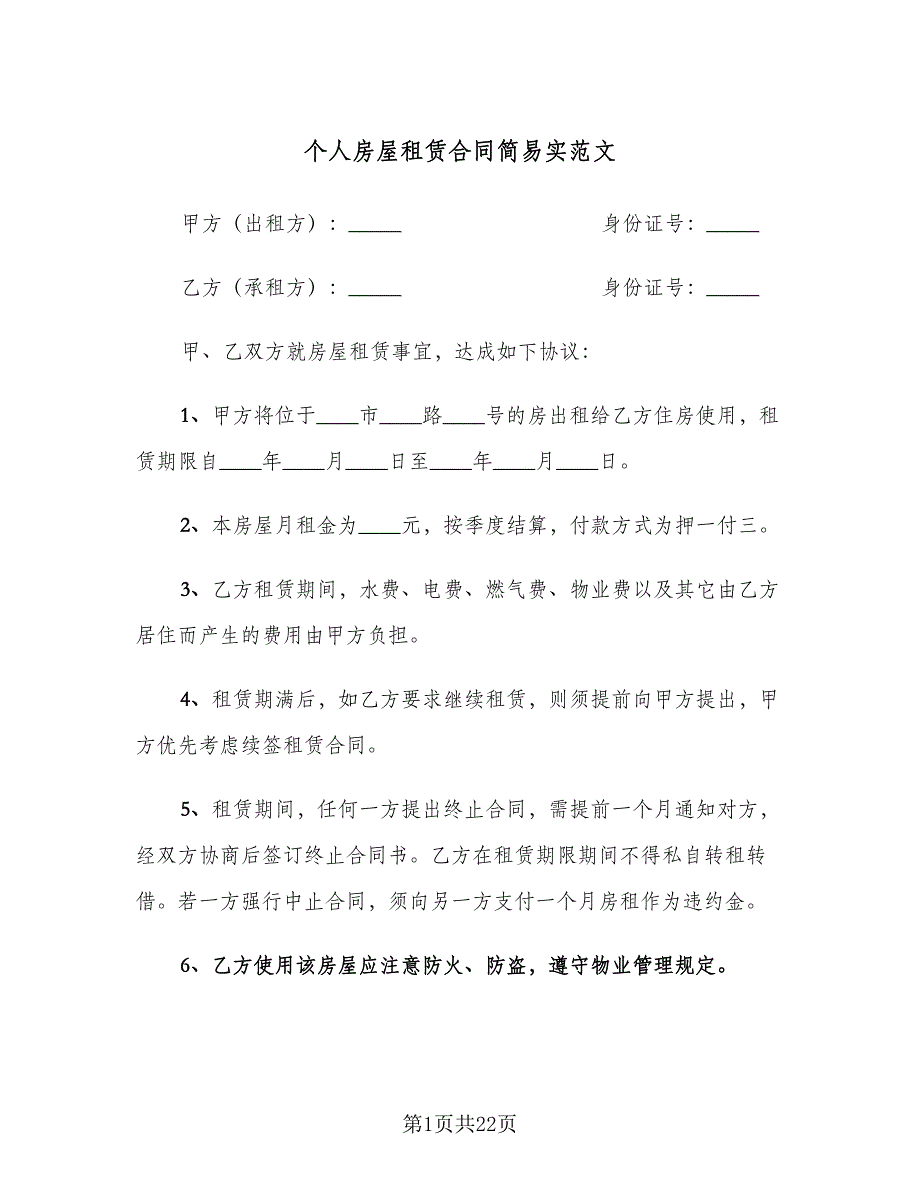 个人房屋租赁合同简易实范文
甲方（出租方）：_____ 身份证号：_____
乙方（承租方）：_____ 身份证号：_____
甲、乙双方就房屋租赁事宜，达成如下协议：
1、甲方将位于____市____路____号的房出租给乙方住房使用，租
赁期限自____年____月____日至____年____月____日。
2、本房屋月租金为____元，按季度结算，付款方式为押一付三。
3、乙方租赁期间，水费、电费、燃气费、物业费以及其它由乙方
居住而产生的费用由甲方负担。
4、租赁期满后，如乙方要求继续租赁，则须提前向甲方提出，甲
方优先考虑续签租赁合同。
5、租赁期间，任何一方提出终止合同，需提前一个月通知对方，
经双方协商后签订终止合同书。乙方在租赁期限期间不得私自转租转
借。若一方强行中止合同，须向另一方支付一个月房租作为违约金。
6、乙方使用该房屋应注意防火、防盗，遵守物业管理规定。
第1页共22页